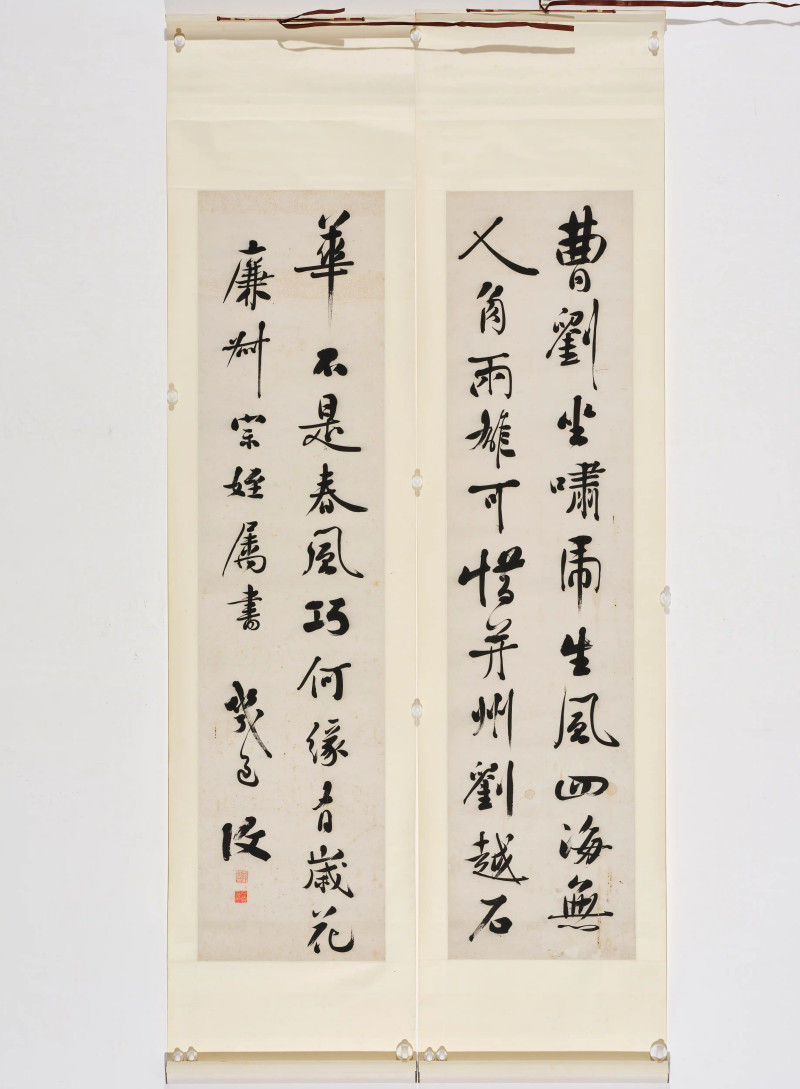 曹劉坐嘯虎生風四海無
人角兩雄可惜并州劉越石
華不是春風巧何緣有歲花
廉 宗姪屬書 幾道 復